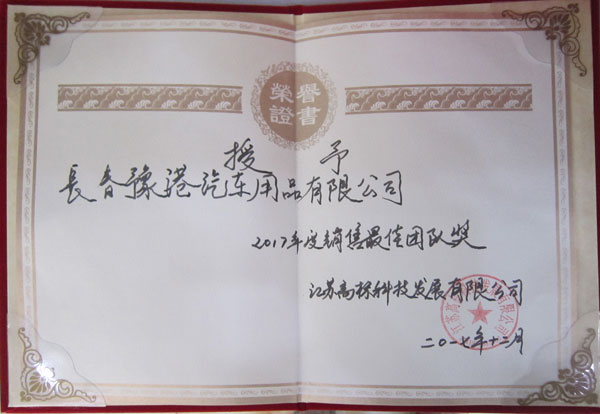 榮譽
證書
授予
長春豫港汽车用品有限公司
2017年度销售最佳团队奖
江苏高标科技发展有限公司
二〇一七年十二月